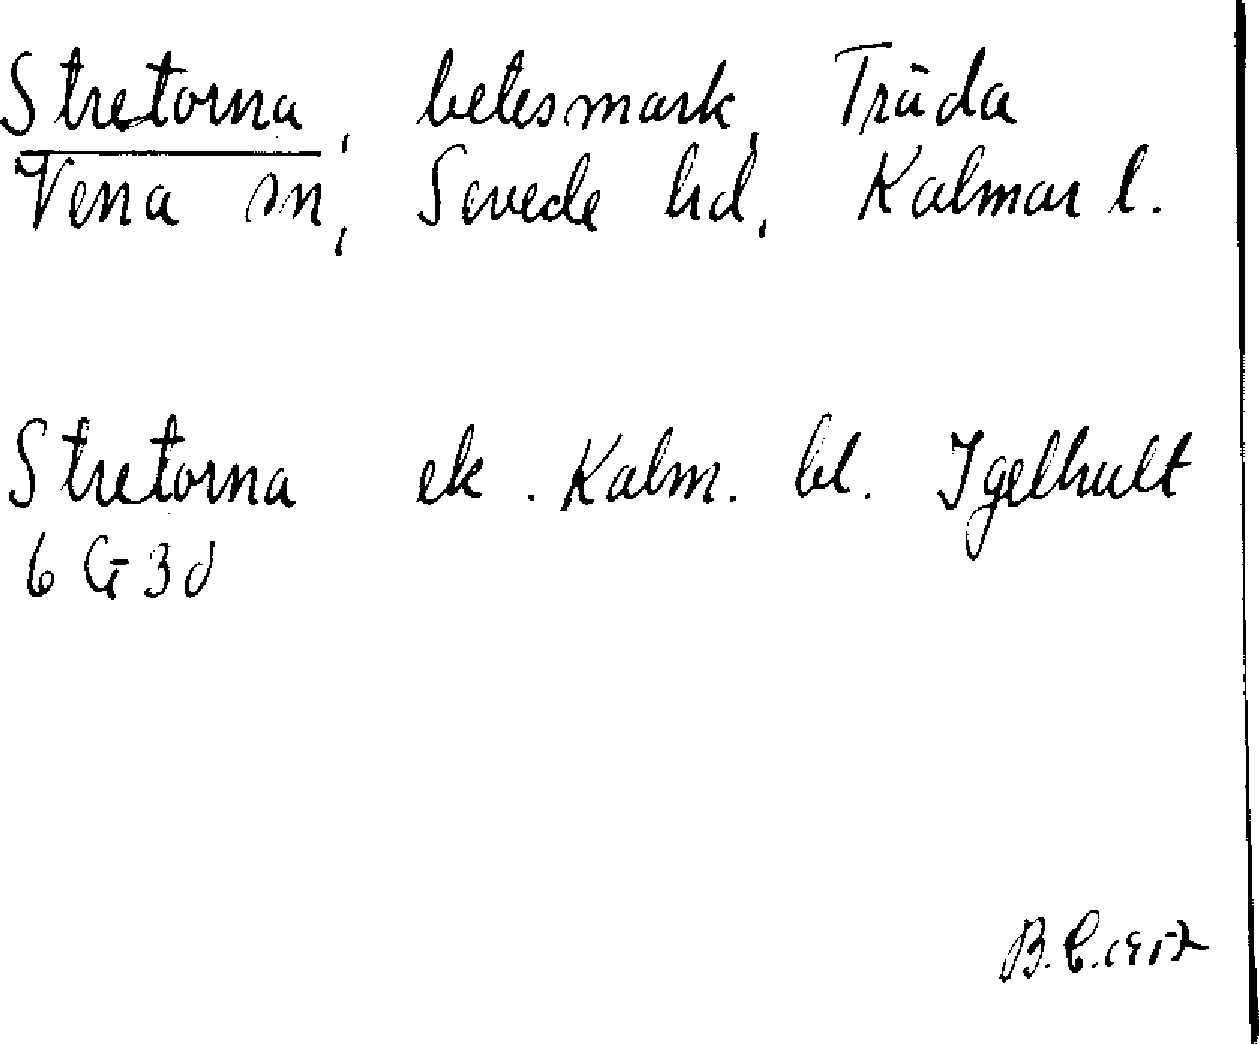 Stretorna, betesmark, Träda
Vena sn, Sevede hd, Kalmar l.
Stretorna ek. Kalm. bl. Igelhult
6 G 3d
B.C.